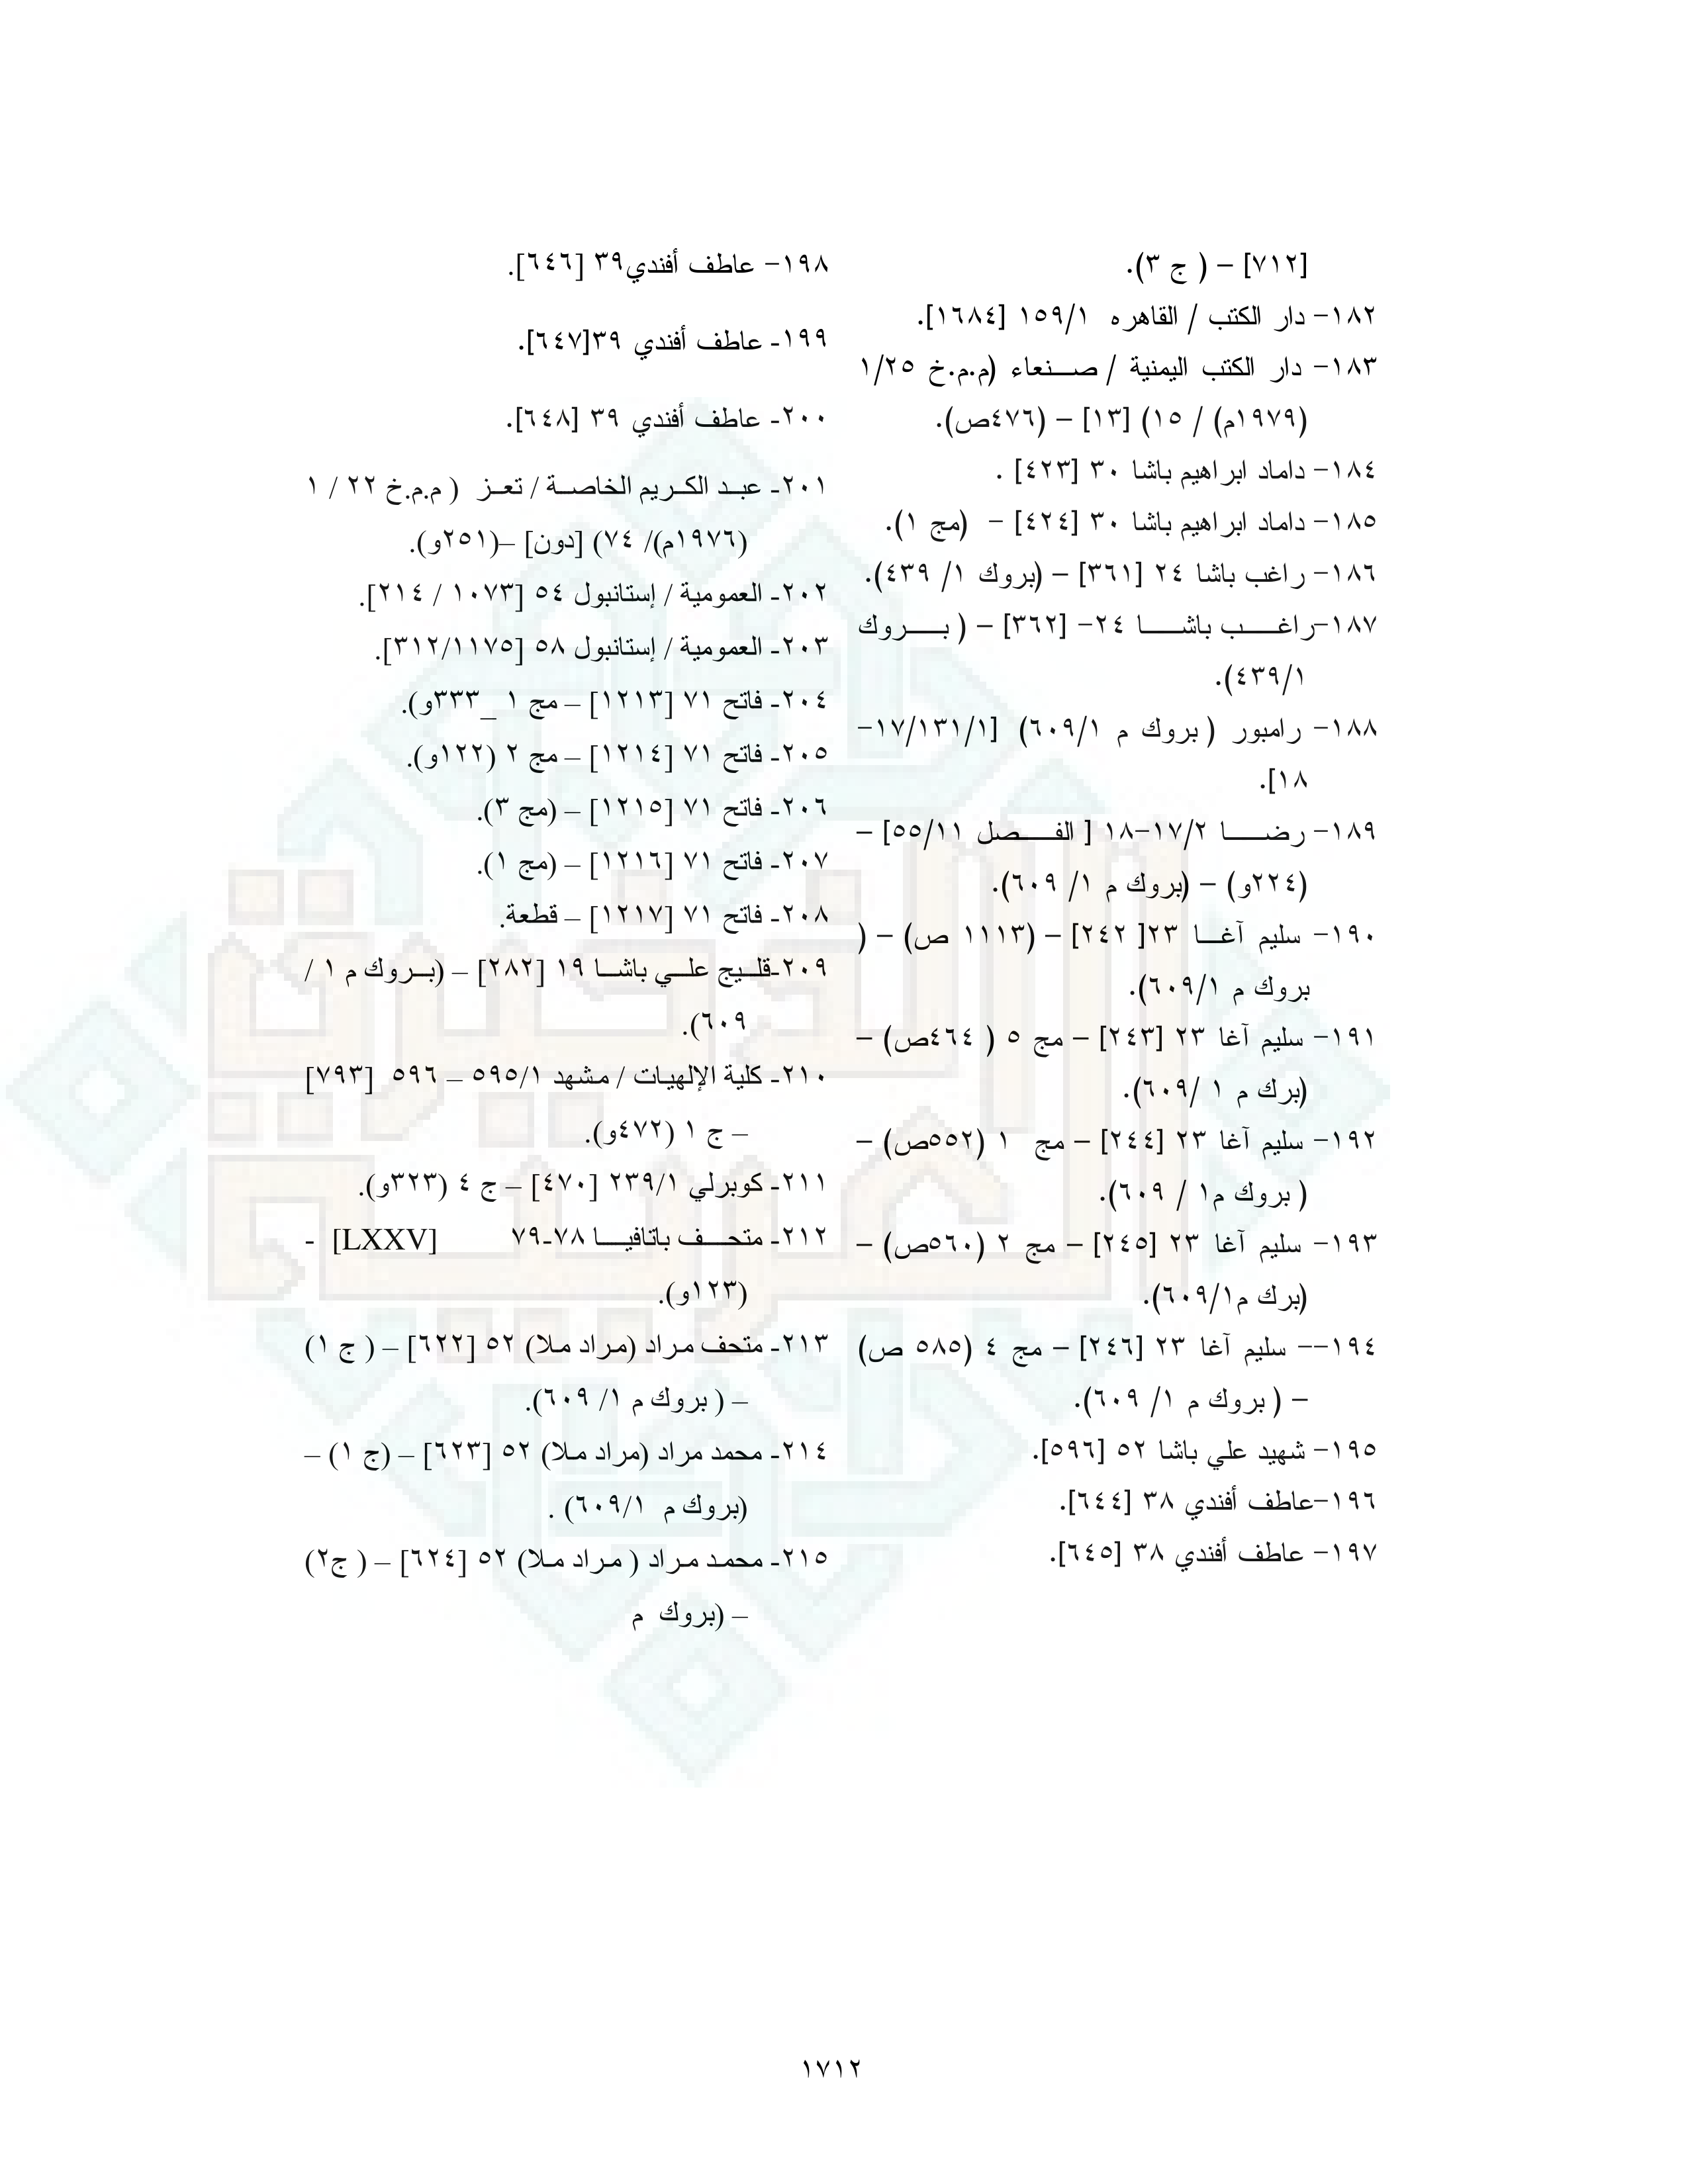 [٧١٢] – ( ج ٣).
١٨٢– دار الكتب / القاهره ١٥٩/١ [١٦٨٤].
١٨٣– دار الكتب اليمنية / صنعاء (م.م.خ ١/٢٥
(١٩٧٩م) / ١٥) [١٣] – (٤٧٦ص).
١٨٤– داماد ابراهيم باشا ٣٠ [٤٢٣] .
١٨٥– داماد ابراهيم باشا ٣٠ [٤٢٤] – (مج ١).
١٨٦– راغب باشا ٢٤ [٣٦١] – (بروك ١/ ٤٣٩).
١٨٧–راغب باشا ٢٤– [٣٦٢] – ( بروك
٤٣٩/١).
١٨٨– رامبور ( بروك م ٦٠٩/١) [١٧/١٣١/١–
١٨].
١٨٩– رضا ١٧/٢–١٨ [ الفصل ٥٥/١١] –
(٢٢٤و) – (بروك م ١/ ٦٠٩).
١٩٠– سليم آغا ٢٣[ ٢٤٢] – (١١١٣ ص) – (
بروك م ٦٠٩/١).
١٩١– سليم آغا ٢٣ [٢٤٣] – مج ٥ ( ٤٦٤ص) –
(برك م ١ /٦٠٩).
١٩٢– سليم آغا ٢٣ [٢٤٤] – مج ١ (٥٥٢ص) –
( بروك م١ / ٦٠٩).
١٩٣– سليم آغا ٢٣ [٢٤٥] – مج ٢ (٥٦٠ص) –
(برك م٦٠٩/١).
١٩٤–– سليم آغا ٢٣ [٢٤٦] – مج ٤ (٥٨٥ ص)
– ( بروك م ١/ ٦٠٩).
١٩٥– شهيد علي باشا ٥٢ [٥٩٦].
١٩٦–عاطف أفندي ٣٨ [٦٤٤].
١٩٧– عاطف أفندي ٣٨ [٦٤٥].
١٩٨– عاطف أفندي٣٩ [٦٤٦].
١٩٩- عاطف أفندي ٣٩[٦٤٧].
٢٠٠- عاطف أفندي ٣٩ [٦٤٨].
٢٠١- عبد الكريم الخاصة / تعز ( م.م.خ ٢٢ / ١
(١٩٧٦م)/ ٧٤) [دون] –(٢٥١و).
٢٠٢- العمومية / إستانبول ٥٤ [١٠٧٣ / ٢١٤].
٢٠٣- العمومية / إستانبول ٥٨ [٣١٢/١١٧٥].
٢٠٤- فاتح ٧١ [١٢١٣] – مج ١ _٣٣٣و).
٢٠٥- فاتح ٧١ [١٢١٤] – مج ٢ (١٢٢و).
٢٠٦- فاتح ٧١ [١٢١٥] – (مج ٣).
٢٠٧- فاتح ٧١ [١٢١٦] – (مج ١).
٢٠٨- فاتح ٧١ [١٢١٧] – قطعة.
٢٠٩-قليج علي باشا ١٩ [٢٨٢] – (بروك م ١ /
٦٠٩).
٢١٠- كلية الإلهيات / مشهد ٥٩٥/١ – ٥٩٦ [٧٩٣]
– ج ١ (٤٧٢و).
٢١١- كوبرلي ٢٣٩/١ [٤٧٠] – ج ٤ (٣٢٣و).
٢١٢- متحف باتافيا ٧٨-٧٩ [LXXV] -
(١٢٣و).
٢١٣- متحف مراد (مراد ملا) ٥٢ [٦٢٢] – ( ج ١)
– ( بروك م ١/ ٦٠٩).
٢١٤- محمد مراد (مراد ملا) ٥٢ [٦٢٣] – (ج ١) –
(بروك م ٦٠٩/١) .
٢١٥- محمد مراد ( مراد ملا) ٥٢ [٦٢٤] – ( ج٢)
– (بروك م
١٧١٢
الذخيرة
العربية